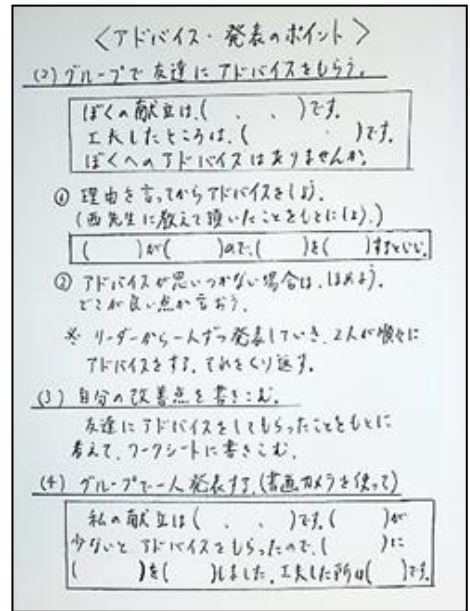 〈アドバイス・発表のポイント〉
(2) グループで友達にアドバイスをもらう。
ぼくの献立は、(　、　、　)です。
工夫したところは、(　　)です。
ぼくへのアドバイスはありませんか。
① 理由を言ってからアドバイスをしよう。
(西先生に教えて頂いたことをもとにしよう。)
(　　)が(　　)ので、(　　)を(　　)するといい。
② アドバイスが思いつかない場合は、ほめよう。
どこが良い点か言おう。
※ リーダーから一人ずつ発表していき、2人が順々に
アドバイスをする。それをくり返す。
(3) 自分の改善点を書きこむ。
友達にアドバイスをしてもらったことをもとに
考えて、ワークシートに書きこむ。
(4) グループで一人発表する。(書画カメラを使って)
私の献立は(　、　、　)です。(　　)が
少ないとアドバイスをもらったので、(　　)に
(　　)を(　　)しました。工夫した所は(　　)です。